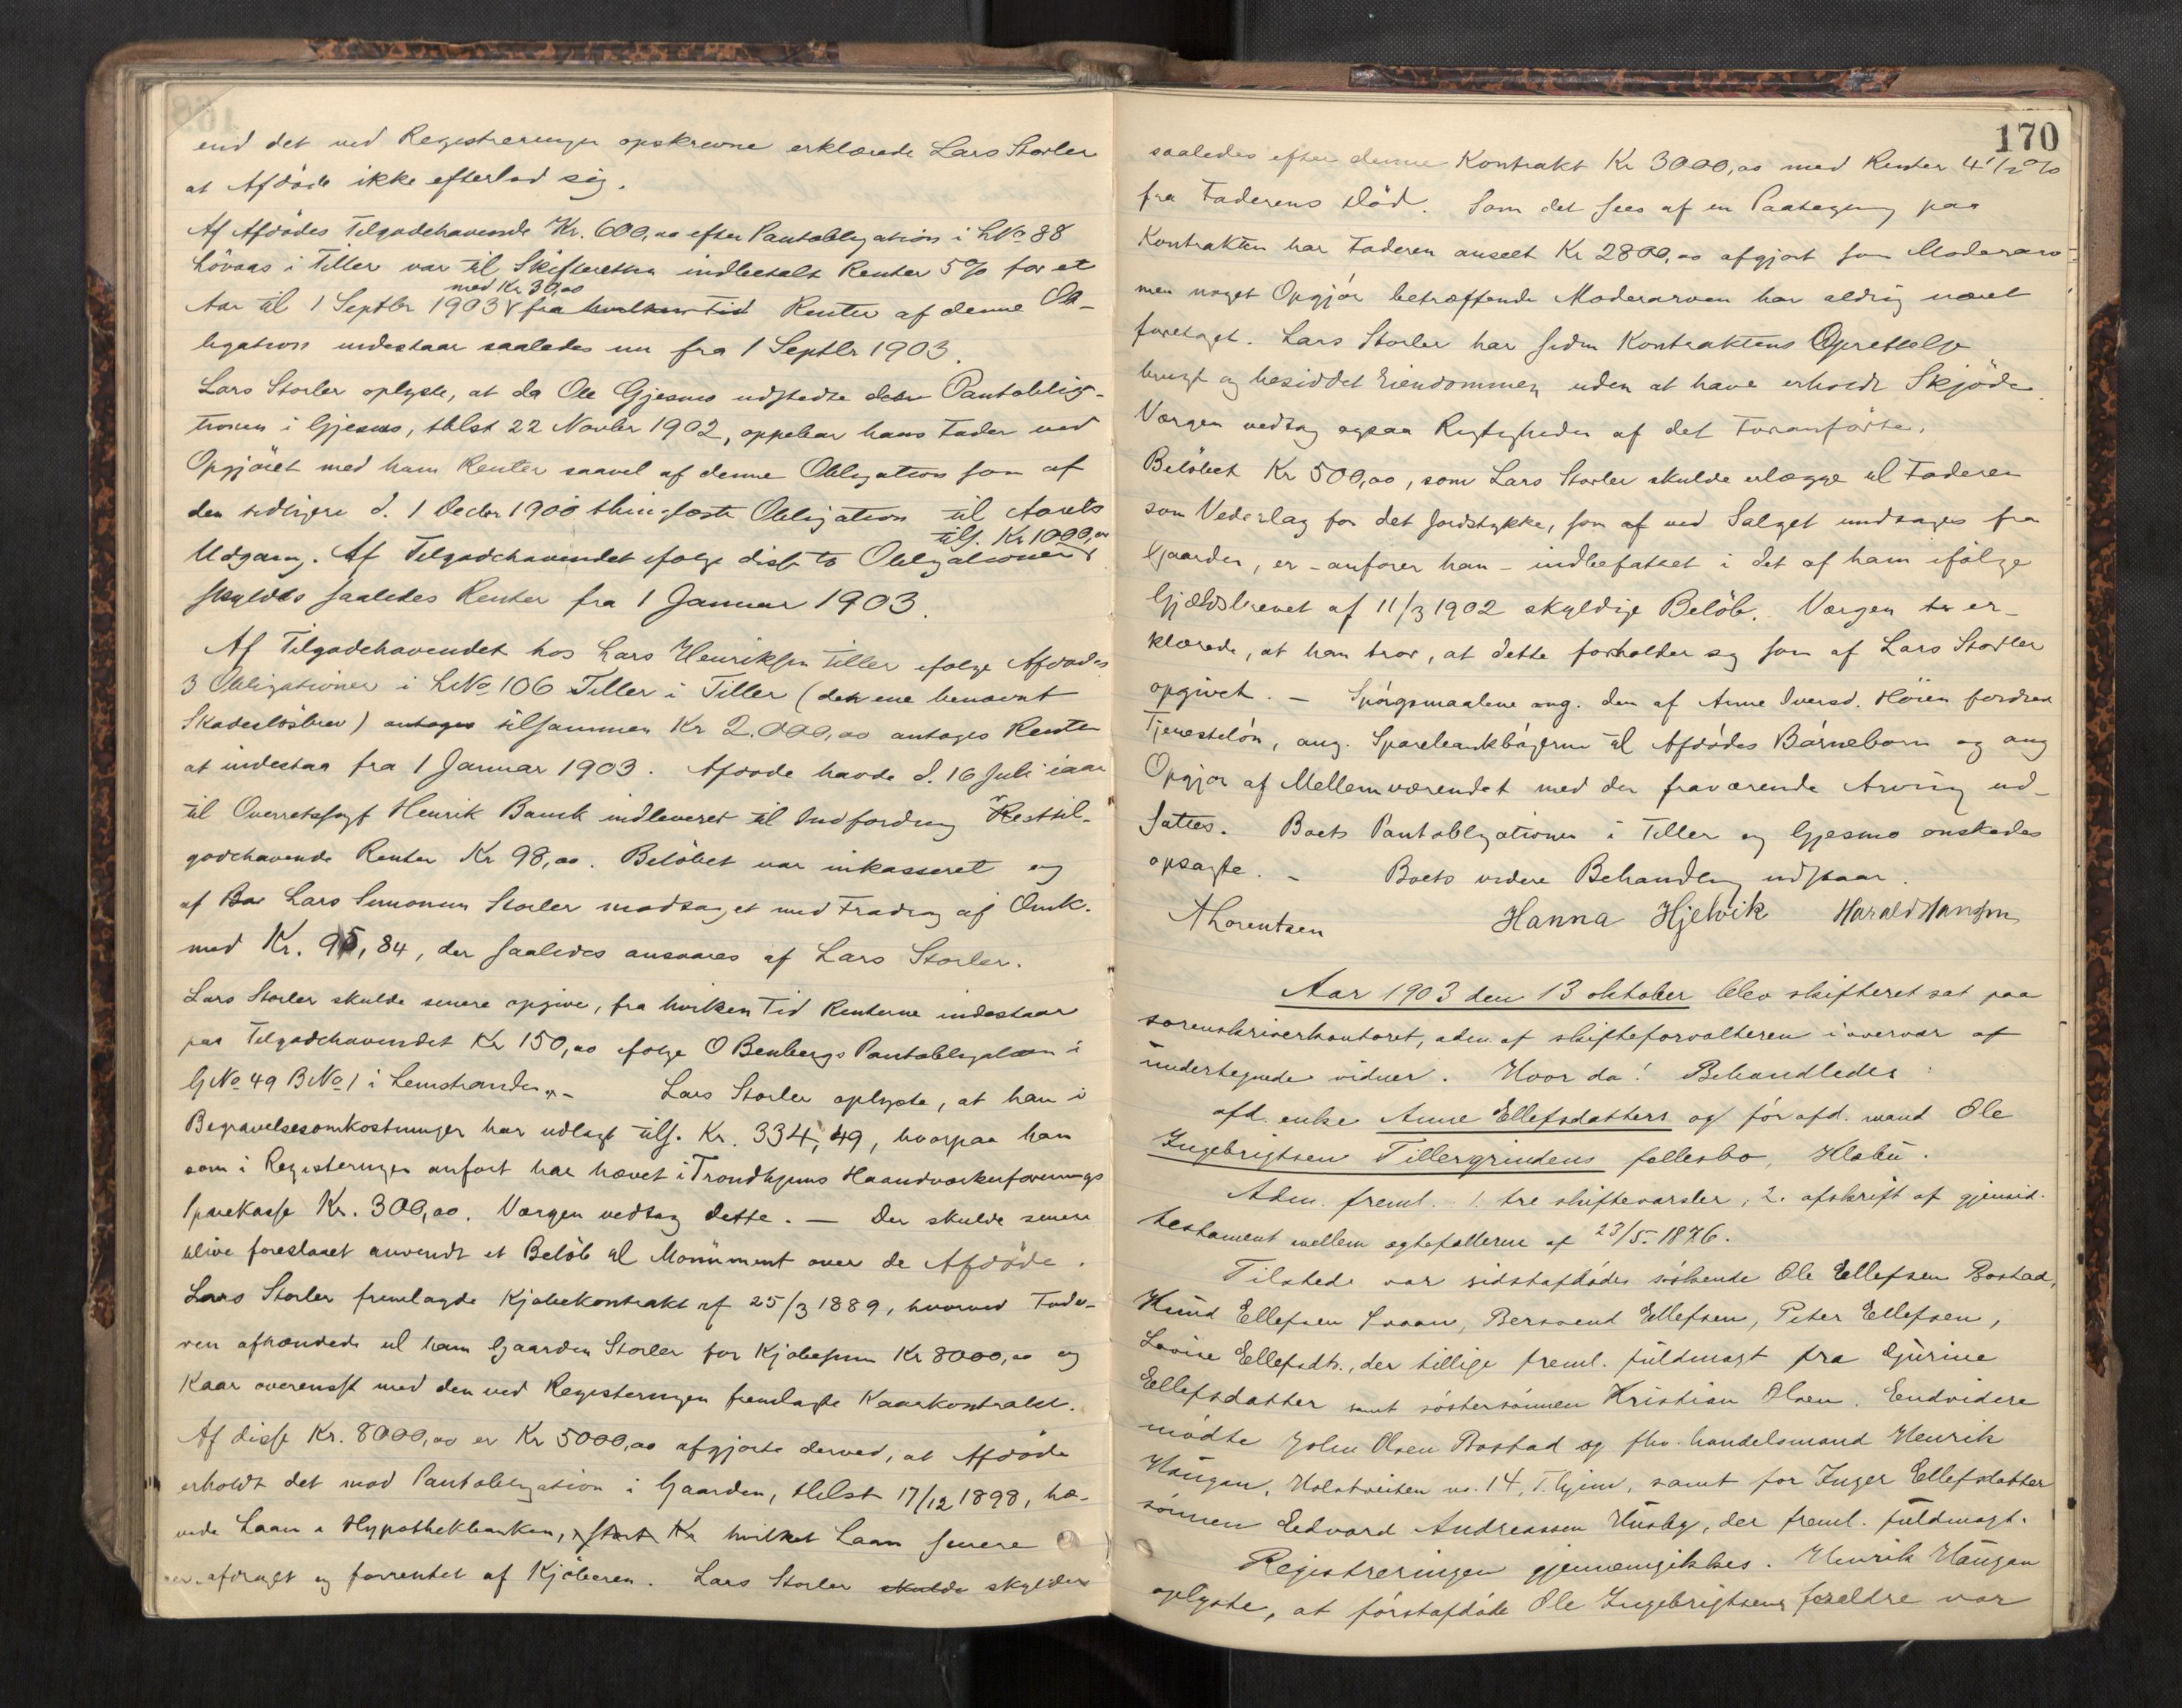 end det ved Registreringen opskrevne erklærede Lars Storler
at Afdøde ikke efterlod sig.
Af Afdødes Tilgodehavende Kr. 600,00 efter Pantobligation i LNo 88
Løvaas i Tiller var til Skifteretten indbetalt Renter 5% for et
med Kr 30,00
Aar til 1 Septbr 1903 fra hvilken Tid Renter af denne Ob-
ligation indestaar saaledes nu fra 1 Septbr 1903.
Lars Storler oplyste, at da Ole Gjesmo udstedte Pantobliga-
tionen i Gjesmo, thlst 22 Novbr 1902, oppebar hans Fader ved
Opgjøret med ham Renter saavel af denne Obligation som af
den tidligere d. 1 Decbr 1900 thinglæste Obligation til Aarets
tils. Kr 1000,00
Udgang. Af Tilgodehavendet ifølge disse to Obligationer
skyldes saaledes Renter fra 1 Januar 1903.
Af Tilgodehavendet hos Lars Henriksen Tiller ifølge Afdødes
3 Obligationer i LNo 106 Tiller i Tiller (den ene benævnt
Skadesløsbrev) antages tilsammen Kr 2.000,00 antages Renter
at indestaa fra 1 Januar 1903. Afdøde havde d. 16 Juli iaar
til Overretssagf Henrik Bauck indleveret til Indfordring Resttil-
godehavende Renter Kr 98,00. Beløbet var inkasseret og
af Lars Simonsen Storler modtaget med Fradrag af Omk.
med Kr. 95,84, der saaledes ansvares af Lars Storler.
Lars Storler skulde senere opgive, fra hvilken Tid Renterne indestaar
paa Tilgodehavendet Kr 150,00 ifølge O Benbergs Pantobligation i
GNo 49 BNo 1 i Leinstranden. - Lars Storler oplyste, at han i
Begravelsesomkostninger har udlagt tils. Kr. 334,49, hvorpaa han
som i Registeringen anført har hævet i Trondhjems Haandværkerforenings
Sparekasse Kr. 300,00. Værgen vedtog dette. — Der skulde senere
blive foreslaaet anvendt et Beløb til Monument over de Afdøde.
Lars Storler fremlagde Kjøbekontrakt af 25/3 1889, hvorved Fade-
ren afhændede til ham Gaarden Storler for Kjøbesum Kr 8000,00 og
Kaar overensst med den ved Registeringen fremlagte Kaarkontrakt.
Af disse Kr. 8000,00 er Kr 5000,00 afgjorte derved, at Afdøde
erholdt det mod Pantobligation i Gaarden, thlst 17/12 1898, hæ-
vede Laan i Hypothekbanken, stort Kr hvilket Laan senere
er afdraget og forrentet af Kjøberen. Lars Storler skulde skylder
170
saaledes efter denne Kontrakt Kr 3000,00 med Renter 4 1/2 %
fra Faderens Død. Som det sees af en Paategning paa
Kontrakten har Faderen anseet Kr 2800,00 afgjort som Moderarv
men noget Opgjør betræffende Moderarven har aldrig været
foretaget. Lars Storler har siden Kontraktens Oprettelse
brugt og besiddet Eiendommen uden at have erholdt Skjøde.
Værgen vedtog ogsaa Rigtigheden af det Foranførte.
Beløbet Kr 500,00, som Lars Storler skulde erlægge til Faderen
som Vederlag for det Jordstykke, som af ved Salget undtages fra
Gaarden, er - anfører han - indbefattet i det af ham ifølge
Gjældsbrevet af 11/3 1902 skyldige Beløb. Værgen er-
klærede, at han tror, at dette forholder sig som af Lars Storler
opgivet. - Spørgsmaalene ang. den af Anne Iversd. Høien fordrede
Tjenesteløn, ang. Sparebankbøgerne til Afdødes Børnebørn og ang
Opgjør af Mellemværendet med den fraværende Arving ud-
sattes. Boets Pantobligationer i Tiller og Gjesmo ønskedes
opsagte. - Boets videre Behandling udstaar.
A Lorentzen Hanna Hjelvik Harald Hansen
Aar 1903 den 13 oktober blev skifteret sat paa
sorenskriverkontoret, adm. af skifteforvalteren i overvær af
undertegnede vidner. Hvor da! Behandledes:
afd. enke Anne Ellefsdatters og før afd. mand Ole
Ingebrigtsen Tillergrindens fællesbo, Klæbu.
Adm. freml. 1. tre skiftevarsler, 2. afskrift af gjensid.
testament mellem ægtefællerne af 23/5. 1876.
Tilstede var sidstafdødes søskende Ole Ellefsen Bostad,
Knud Ellefsen Svaan, Bersvend Ellefsen, Peter Ellefsen,
Lovise Ellefsdtr., der tillige freml. fuldmagt fra Gjurine
Ellefsdatter samt søstersønnen Kristian Olsen. Endvidere
mødte John Olsen Bostad og fhv. handelsmand Henrik
Haugan, Holstveiten no. 14, T.hjem, samt for Inger Ellefsdatter
sønnen Edvard Andreassen Husby, der freml. fuldmagt.
Registreringen gjennemgikkes. Henrik Haugan
oplyste, at førstafdøde Ole Ingebrigtsens forældre var